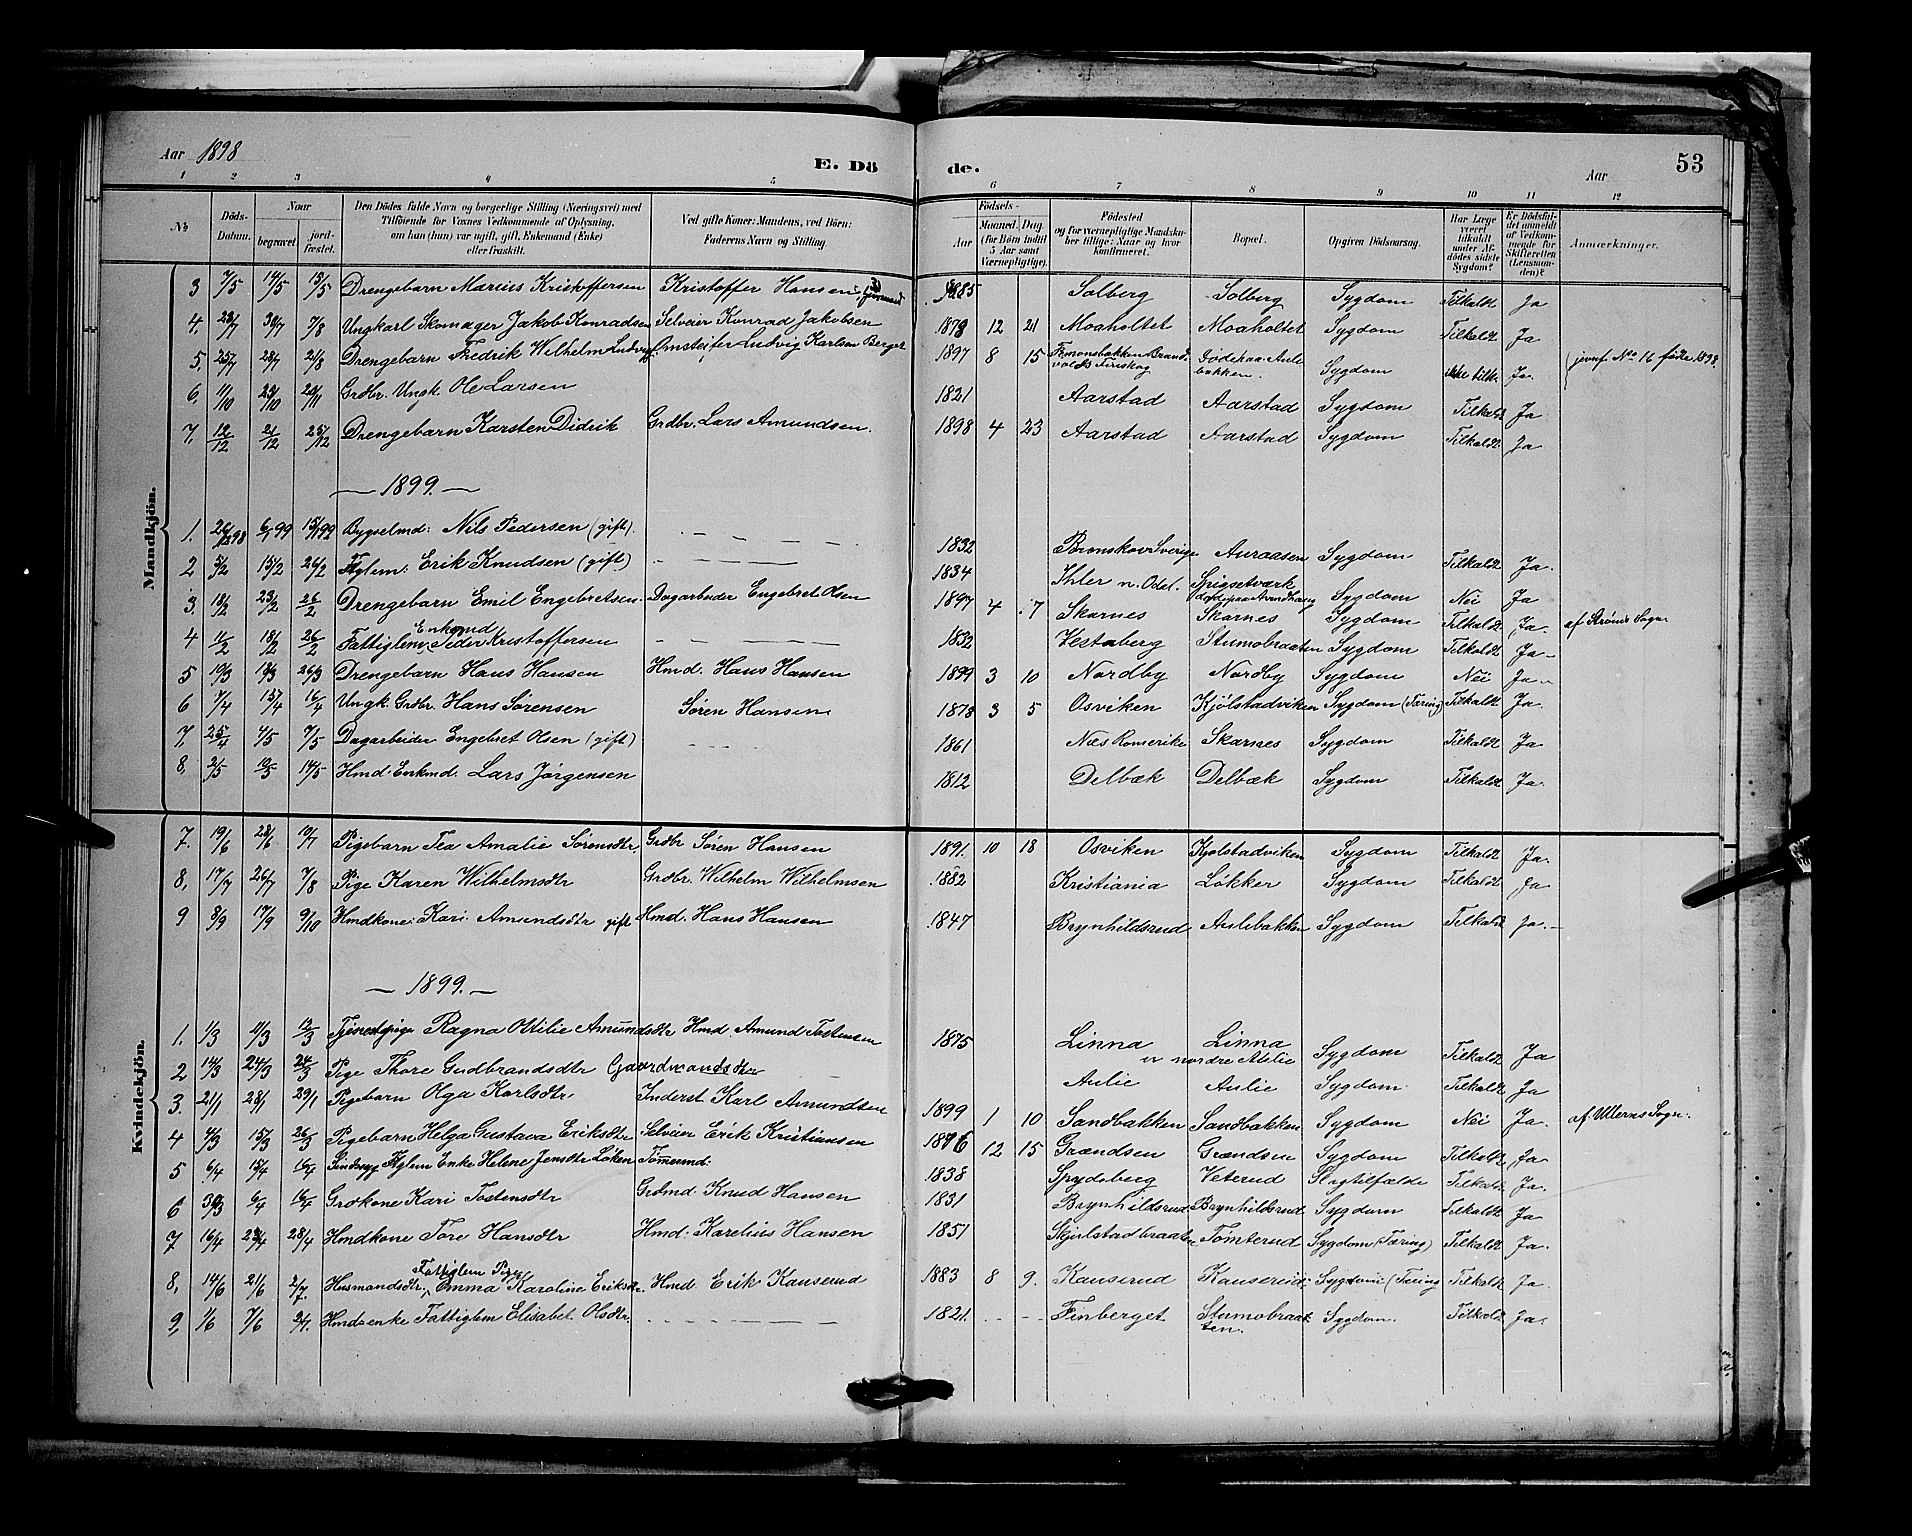 Aar 1898 E. Dö de. Aar 53
1 2 3 4 5 6 7 8 9 10 11 12
№ Döds-Datum. Naar begravet. jordfæstet. Den Dödes fulde Navn og borgerlige Stilling (Næringsvei) med Tilföiende for Voxnes Vedkommende af Oplysning, om han (hun) var ugift, gift, Enkemand (Enke) eller fraskilt. Ved gifte Koner: Mandens, ved Börn: Faderens Navn og Stilling. Födsels- Aar Maaned. Dag. (for Börn indtil 5 Aar samt Værnepligtige). Födested og for værnepligtige Mandskaber tillige: Naar og hvor konfirmeret. Bopæl. Opgiven Dödsaarsag. Har Læge været tilkaldt under Afdödes sidste Sygdom? Er Dödsfaldet anmeldt af Vedkommende for Skifteretten (Lensmanden)? Anmærkninger.
Mandkjön.
3 7/5 14/5 15/5 Drengebarn Marius Kristoffersen Kristoffer Hansen 1885 Solberg Solberg Sygdom Tilkaldt Ja
4, 23/7 30/7 7/8 Ungkarl Skomager Jakob Konradsen Selveier Konrad Jakobsen 1878 12 21 Moaholtet Moaholtet Sygdom Tilkaldt Ja
5, 25/7 28/7 21/8 Drengebarn Fredrik Wilhelm Ludvigs. Omstreifer Ludvig Karlsen Berger 1897 8 15 Simonsbakken Brandvolds Finskog Gödekaa Aulebakken. Sygdom ikke tilk. Ja. jevnf. No 16 fødte 1898.
6, 11/10 29/10 20/11 Grdbr. Ungk. Ole Larsen 1821 Aarstad Aarstad Sygdom Tilkaldt Ja
7, 12/12 21/12 25/12 Drengebarn Karsten Didrik Grdbr. Lars Amundsen. 1898 4 23 Aarstad Aarstad Sygdom Tilkaldt Ja
— 1899. —
1. 26/12 98 6/1 99 15/1 99 Bygselmd: Nils Pedersen (gift). 1832 Bronskov Sverige Auraasen Sygdom Tilkaldt Ja.
2 5/2 15/2 26/2 Fglem: Erik Knudsen (gift) 1834 Ihler n. Odal. Spigsetværk Sygdom Nei Ja
3. 18/2 23/2 26/2 Drengebarn Emil Engebretsen Dagarbeider Engebret Olsen 1897 4 7 Skarnes Skarnes Sygdom Tilkaldt Ja. af Strøms Sogn
4 11/2 18/2 26/2 Fattiglem, Enkemd Peder Kristoffersen 1832 Vestaberg Stumobraaten Sygdom Tilkaldt Ja
5 10/3 18/3 26/3 Drengebarn Hans Hansen Hmd. Hans Hansen 1899 3 10 Nordby Nordby Sygdom Nei Ja
6 7/4 15/4 16/4 Ungk. Grdbr. Hans Sørensen Søren Hansen 1878 3 5 Osviken Kjølstadviken Sygdom (Tæring) Tilkaldt Ja.
7, 25/4 4/5 7/5 Dagarbeider Engebret Olsen (gift) 1861 Næs Romerike Skarnes Sygdom Tilkaldt Ja
8, 2/5 10/5 14/5 Hmd. Enkmd. Lars Jørgensen 1812 Delbæk Delbæk Sygdom Tilkaldt Ja.
Kvindekjön.
7. 19/6 28/6 10/7 Pigebarn Tea Amalie Sørensdtr. Grdbr Søren Hansen 1891. 10 18 Osviken Kjølstadviken Sygdom Tilkaldt Ja.
8, 17/7 26/7 7/8 Pige Karen Wilhelmsdtr Grdbr. Wilhelm Wilhelmsen 1882 Kristiania Løkker Sygdom Tilkaldt Ja
9 8/9 17/9 9/10 Hmdkone: Kari Amundsdtr gift Hmd. Hans Hansen 1847 Brynhildsrud Aulebakken Sygdom Tilkaldt Ja.
— 1899. —
1. 1/3 11/3 12/3 Tjenestepige Ragna Ottilie Amundsdtr Hmd Amund Tostensen 1875 Linna Linna Sygdom Tilkaldt Ja
2 14/3 24/3 24/3 Pige Thore Gudbrandsdtr Gaardmandsdtr er nordre Aulie Aulie Aulie Sygdom. Tilkaldt Ja
3. 21/1 28/1 29/1 Pigebarn Olga Karlsdtr Inderst Karl Amundsen 1899 1 10 Sandbakken Sandbakken Sygdom Nei Ja. af Ullerns Sogn.
4 4/3 15/3 26/3 Pigebarn Helga Gustava Eriksdtr Selveier Erik Kristiansen 1896 12 15 Grændsen Grændsen Sygdom Tilkaldt Ja
5 6/4 15/4 16/4 Sindssyg Fglem Enke Helene Jensdtr Løken Tømmermd: 1838 Spydeberg Veterud Slagtilfælde Tilkaldt Ja.
6 30/3 6/4 16/4 Grdkone Kari Tostensdtr Grdmd. Knud Hansen 1831 Brynhildsrud Brynhildsrud Sygdom Tilkaldt Ja
7 16/4 23/4 28/4 Hmdkone Tore Hansdtr Hmd. Karelius Hansen 1851 Skjulstadbraaten Tomterud Sygdom (Tæring) Tilkaldt Ja.
8, 14/6 21/6 2/7. Husmandsdtr., Fattiglem Pige Emma Karoline Eriksdtr. Hmd. Erik Kauserud 1883 8 9. Kauserud Kauserud Sygdom (Tæring Tilkaldt Ja.
9, 1/6 7/6 2/7. Hmdsenke Fattiglem Elisabet Olsdtr. 1821. Finberget Stumobraaten. Sygdom. Tilkaldt Ja.